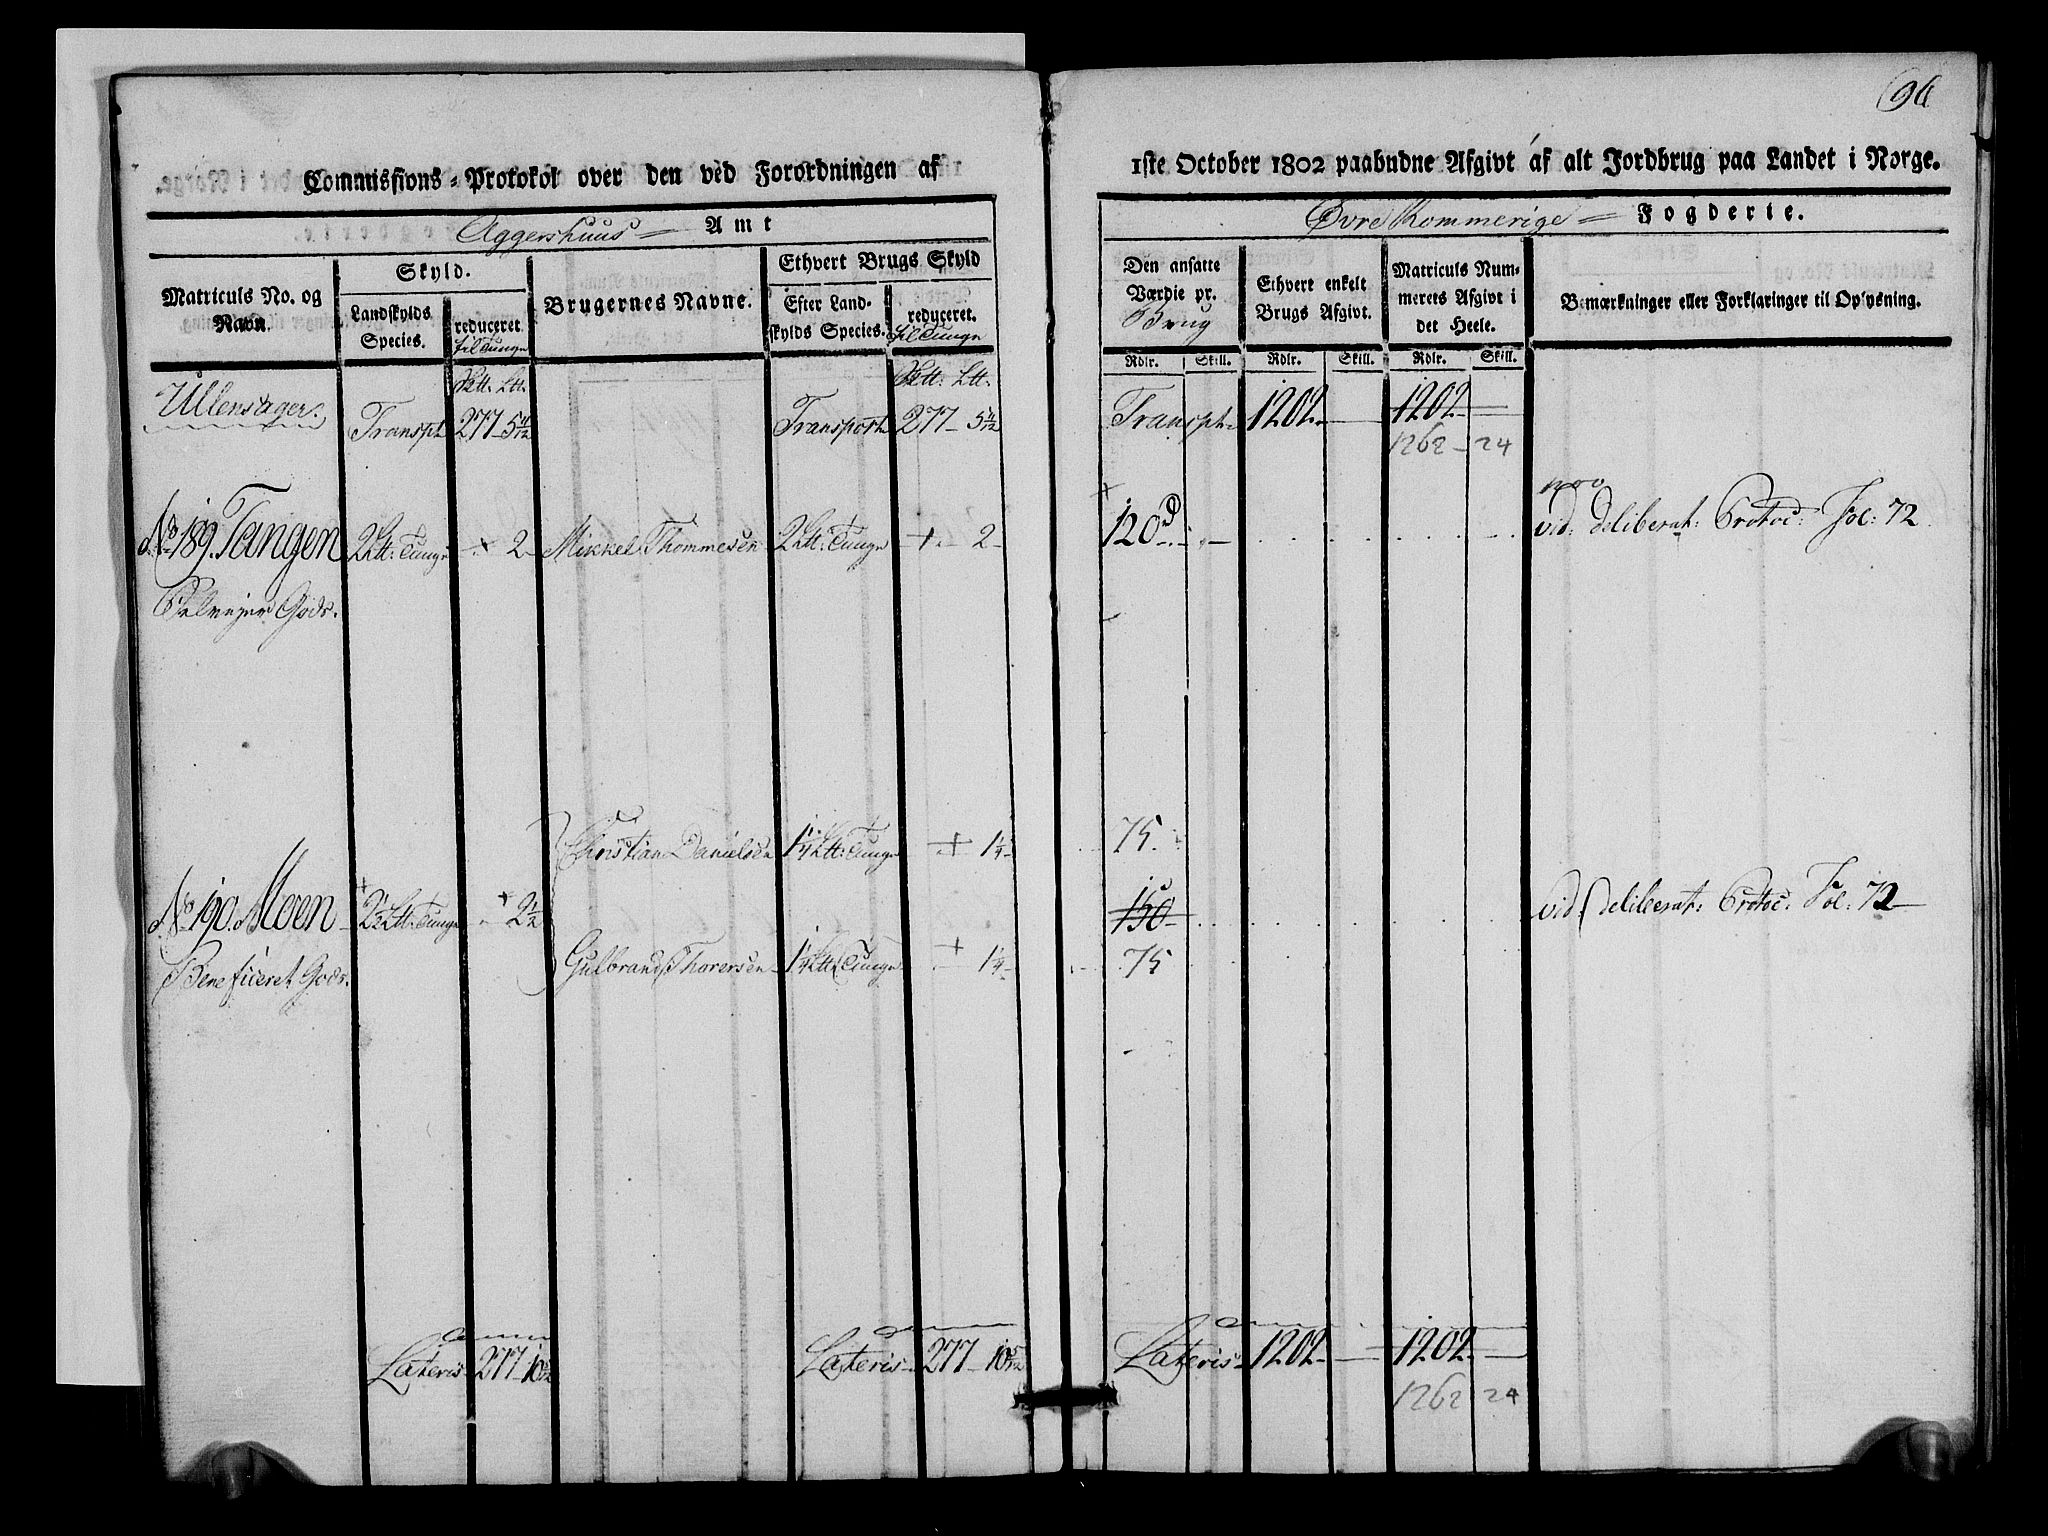 96
Commissions-Protokol over den ved Forordningen af
1ste October 1802 paabudne Afgivt af alt Jordbrug paa Landet i Norge.
Aggershuus Amt
Øvre Rommerige Fogderie.
Matriculs No. og Navn.
Skyld.
Landskylds Species.
reduceret til Tunge
Brugernes Navne.
Ethvert Brugs Skyld
Efter Landskylds Species.
reduceret. til Tunge
Den ansatte Værdie pr. Brug
Ethvert enkelt Brugs Afgivt.
Matriculs Nummerets Afgivt i det Heele.
Bemærkninger eller Forklaringer til Oplysning.
Rdlr. Skill. Rdlr. Skill. Rdlr. Skill.
Ullensager. Transpt 277 - 5 11/12 Transport 277 - 5 11/12 Transpt 1202 - 1202 -
1262 - 24
No 189. Tangen 2 Ltt: Tunge + 2 - Mikkel Thommesen 2 Ltt: Tunge + - 2 - 120 vid: deliberat: Protoc: Fol: 72
Selvejer Gods.
Christian Danielsen 1 1/4 Ltt: Tunge + 1 1/4 - 75
No 190. Moen 2 1/2 Ltt: Tunge + 2 1/2 150 vid: deliberat: Protoc: Fol: 72
Beneficeret Gods. Gulbrand Thoresen 1 1/4 Ltt Tunge + 1 1/4 - 75
Lateris 277 - 10 5/12 Lateris 277 - 10 5/12 Lateris 1202 - 1202 -
1262 24